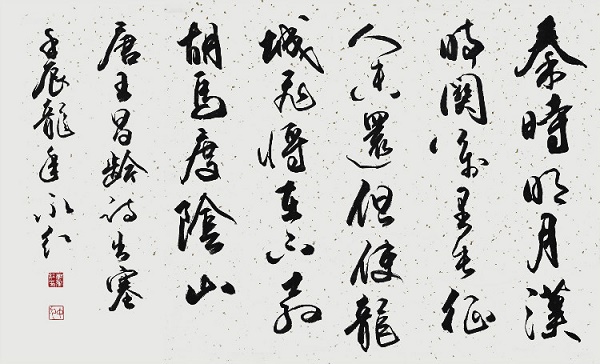 秦時明月漢
時關萬里長征
人未還但使龍
城飛將在不教
胡馬度陰山
唐王昌齡詩出塞
壬辰龍年永